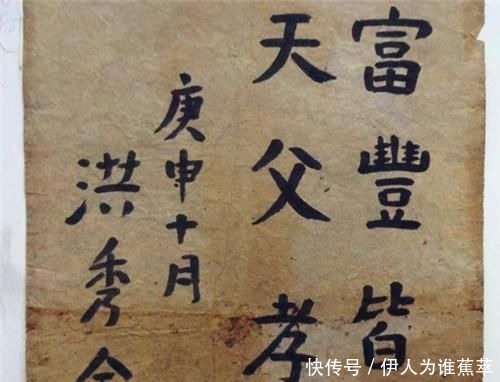 富豐皆
天父孝
庚申十月
洪秀全
快传号／伊人为谁蕉萃